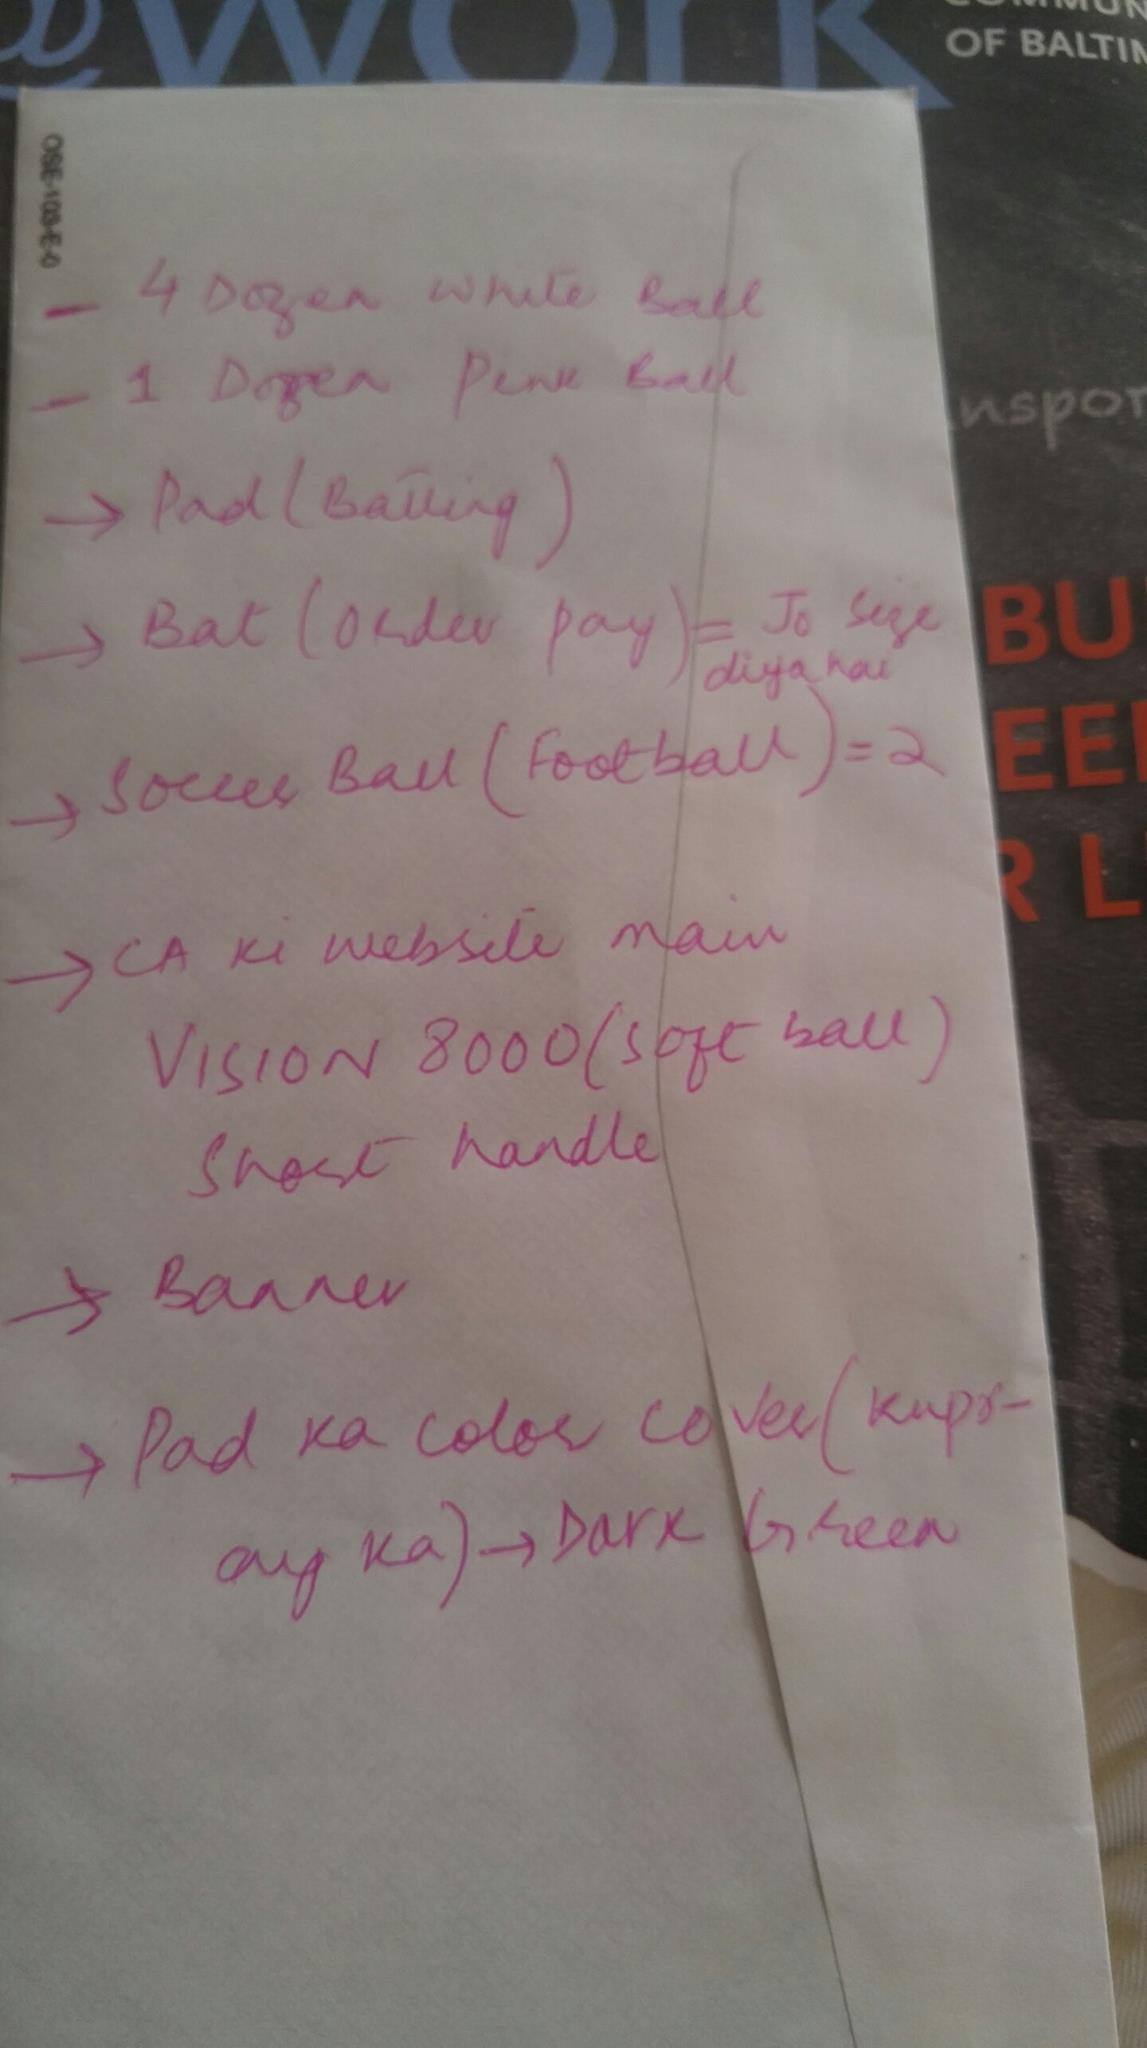 @Work
OF BALTIM
OSE-103-E-0
- 4 Dozen white Ball
- 1 Dozen Pink Ball
nspor
→ Pad (Batting)
→ Bat (Order pay) = Jo size
diya hai
BU
EE
R L
→ Soccer Ball (Football) = 2
→ CA ki website main
VISION 8000 (Soft ball)
Short handle
→ Banner
→ Pad ka color cover (Kupr-
ay ka) → Dark Green